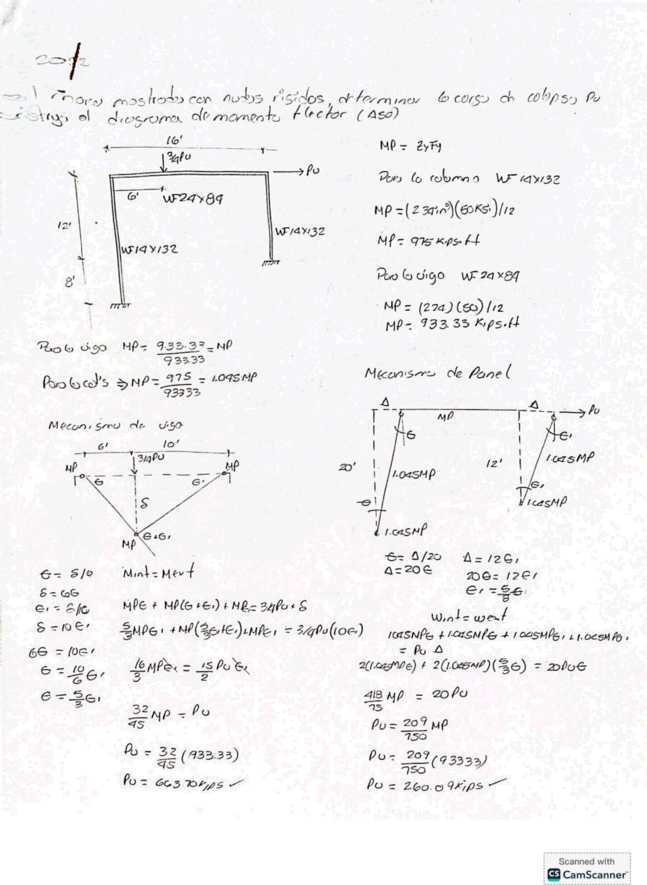 mostrado con nudos rigidos, determinar la carga de colapso Pu
el diagrama de momento flector (ASD)
16'
3/4PU
PU
6'
WF24X84
12'
WF14X132
WF14X132
8'
MP = ZyFy
Para la columna WF14X132
MP=(234in³)(50KSI)/12
MP= 975 KIPS.ft
Para la viga WF24X84
MP= (224)(50)/12
MP= 933.33 KIPS.ft
Para la viga MP= 933.33/933.33 = MP
Para la col's ⇒ MP= 975/93333 = 1.045MP
Mecanismo de viga
6' 10'
3/4PU
MP MP
θ θ₁
δ
MP θ+θ₁
θ = δ/6
δ = 6θ
δ = 10θ₁
6θ = 10θ₁
θ = 10/6 θ₁
θ = 5/3 θ₁
MPθ + MP(θ+θ₁) + MPθ₁ = 3/4PU·δ
16/3 MPθ₁ = 15/2 PUθ₁
32/45 MP = PU
PU = 32/45 (933.33)
PU = 663.70KIPS ✓
Mecanismo de Panel
Δ Δ
MP PU
θ θ₁
20' 12'
1.045MP 1.045MP
θ θ₁
1.045MP 1.045MP
θ = Δ/20 Δ = 12θ₁
Δ = 20θ 20θ = 12θ₁
Wint = Wext
1.045MPθ + 1.045MPθ + 1.045MPθ₁ + 1.045MPθ₁
= PU Δ
2(1.045MPθ) + 2(1.045MP)(5/3θ) = 20PUθ
418/75 MP = 20PU
PU = 209/750 MP
PU = 209/750 (93333)
PU = 260.09KIPS ✓
Scanned with
CS CamScanner